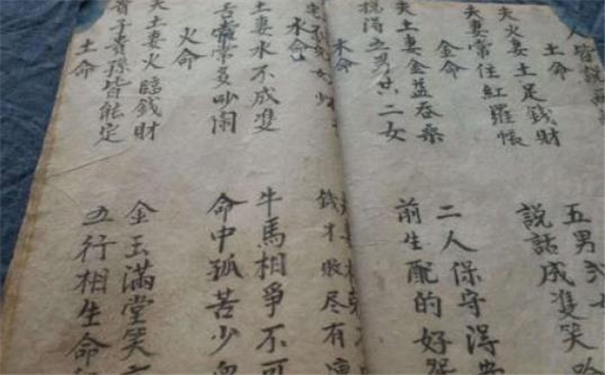 人皆說
土命
夫火妻土足錢財
夫妻常住紅羅帳
金命
夫土妻金益吞桑
得五男共二女
木命
五男
說話成雙笑
二人保守得
前生配的好
水命
土妻水不成雙
常多吵鬧
火命
夫土妻火臨錢財
子貴孫皆能定
土命
錢才敗尽有
牛馬相爭不可
命中孤苦少
金玉滿堂笑
五行相生命